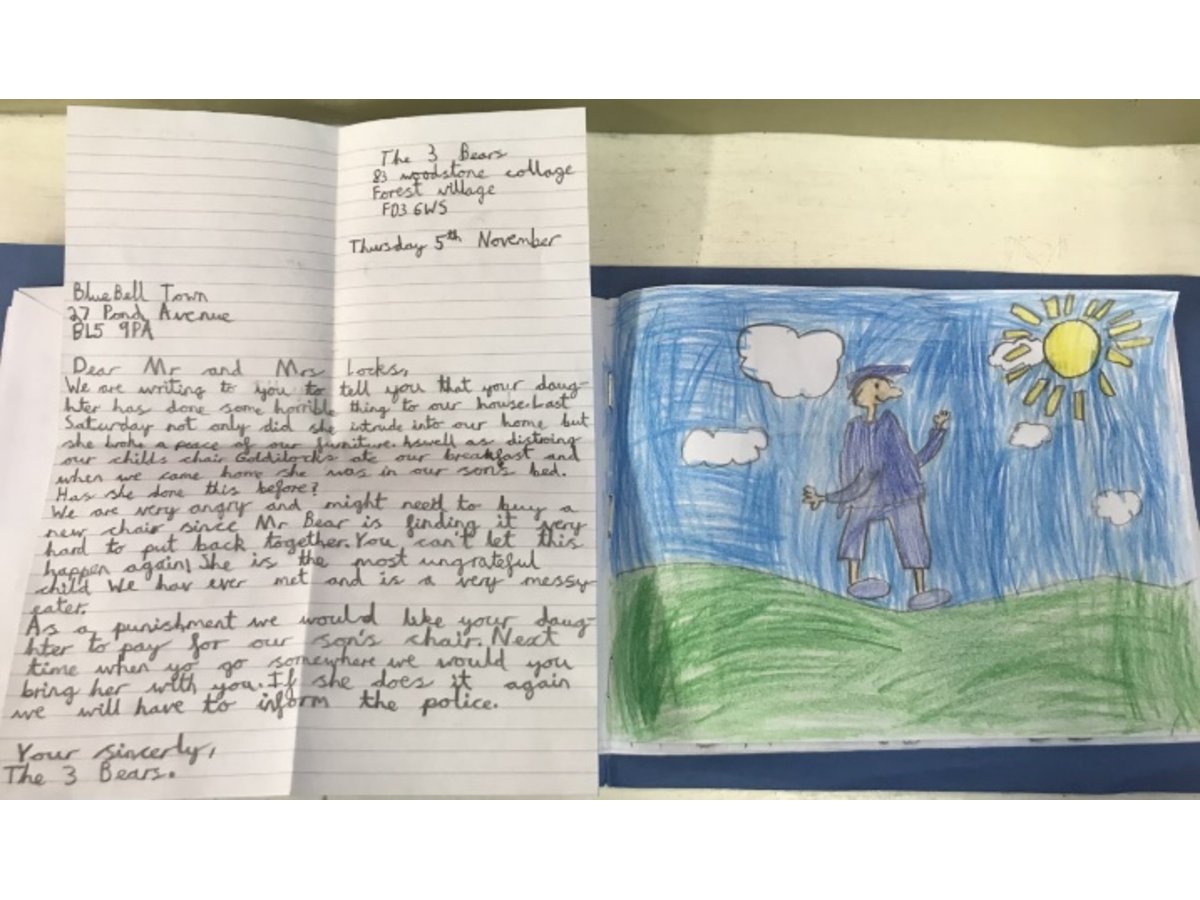 The 3 Bears
83 woodstone collage
Forest village
FD3 6WS
Thursday 5th November
BlueBell Town
27 Pond Avenue
BL5 9PA
Dear Mr and Mrs Locks,
We are writing to you to tell you that your daug-
hter has done some horrible thing to our house. Last
Saturday not only did she intrude into our home but
she broke a peace of our furniture. Aswell as distroing
our childs chair Goldilocks ate our breakfast and
when we came home she was in our son's bed.
Has she done this before?
We are very angry and might need to buy a
new chair since Mr Bear is finding it very
hard to put back together. You can't let this
happen again! She is the most ungrateful
child We hav ever met and is a very messy
eater.
As a punishment we would like your daug-
hter to pay for our son's chair. Next
time when yo go somewhere we would you
bring her with you. If she does it again
we will have to inform the police.
Your sincerly,
The 3 Bears.